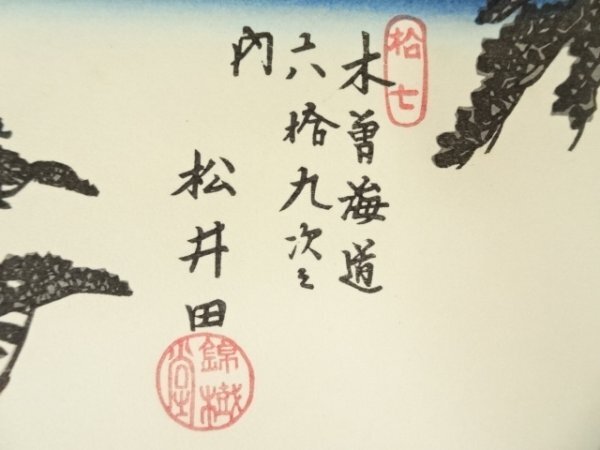 拾七
木曽海道
六拾九次之
内
松井田
錦樹堂